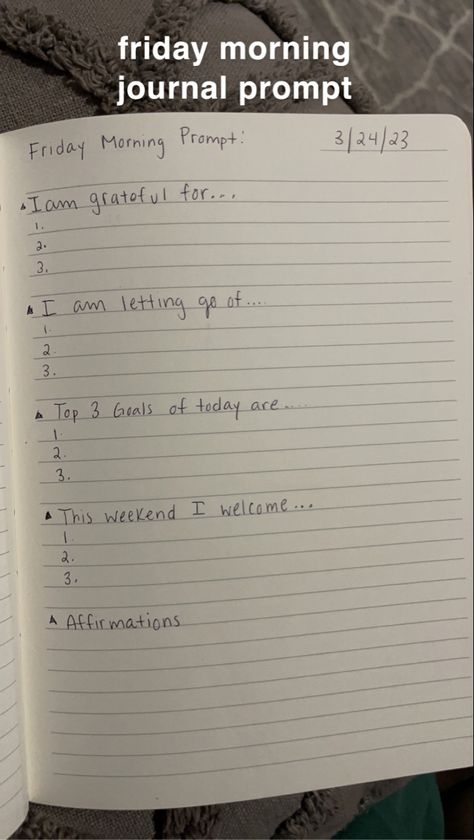 friday morning
journal prompt
Friday Morning Prompt: 3/24/23
I am grateful for...
1.
2.
3.
I am letting go of....
1.
2.
3.
Top 3 Goals of today are....
1.
2.
3.
This weekend I welcome...
1.
2.
3.
Affirmations